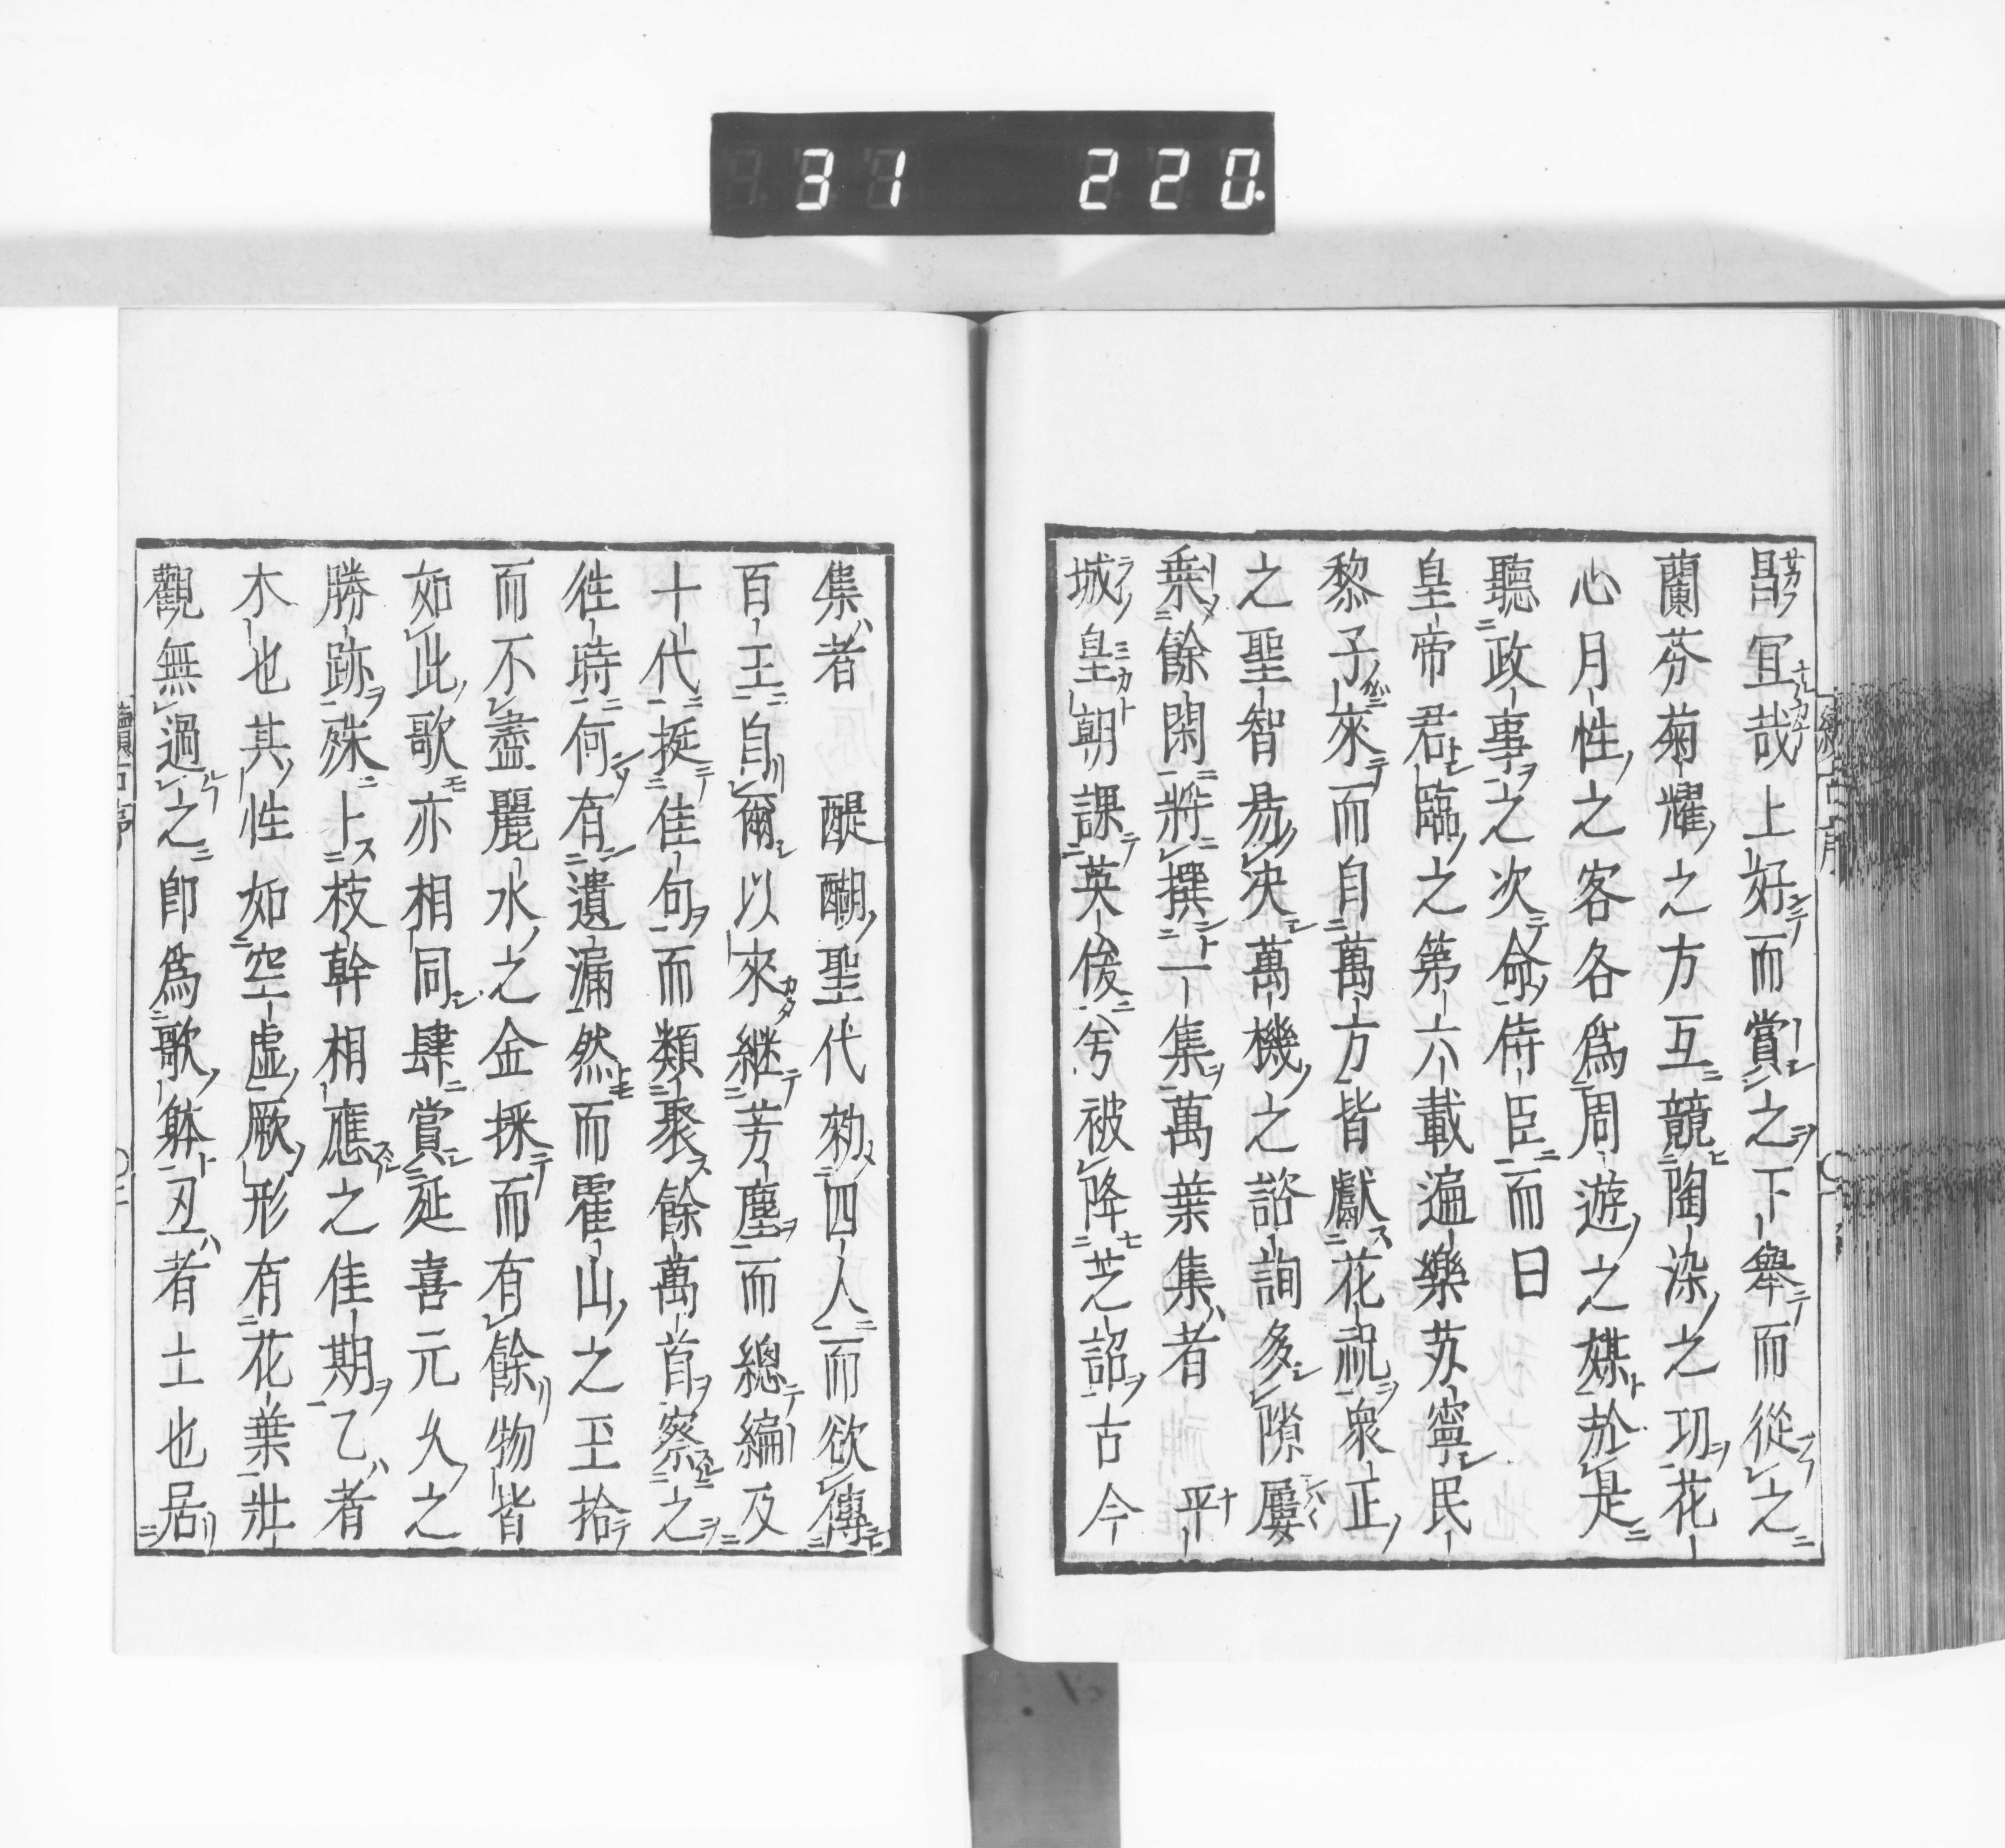 31 220
昌冝哉上好而賞之下舉而從之
蘭芬菊耀之方互競陶染之功花
心月性之客各爲周遊之媒於是
聽政事之次命侍臣而曰
皇帝君臨之第六載遍樂蘇寧民
黎子來而自萬方皆獻花祝衆正
之聖智易决萬機之諮詢多隙屢
乗餘閑將撰一集萬葉集者 平
城皇朝課英俊兮被降芝詔古今
集者 醍醐聖代勑四人而欲傳
百王自爾以來継芳塵而總編及
十代挺佳句而類聚餘萬首察之
徃時何有遺漏然而霍山之玉拾
而不盡麗水之金採而有餘物皆
如此歌亦相同肆賞延喜元久之
勝跡殊上枝幹相應之佳期乙者
木也其性如空虚厥形有花葉壯
觀無過之即爲歌躰丑者土也居